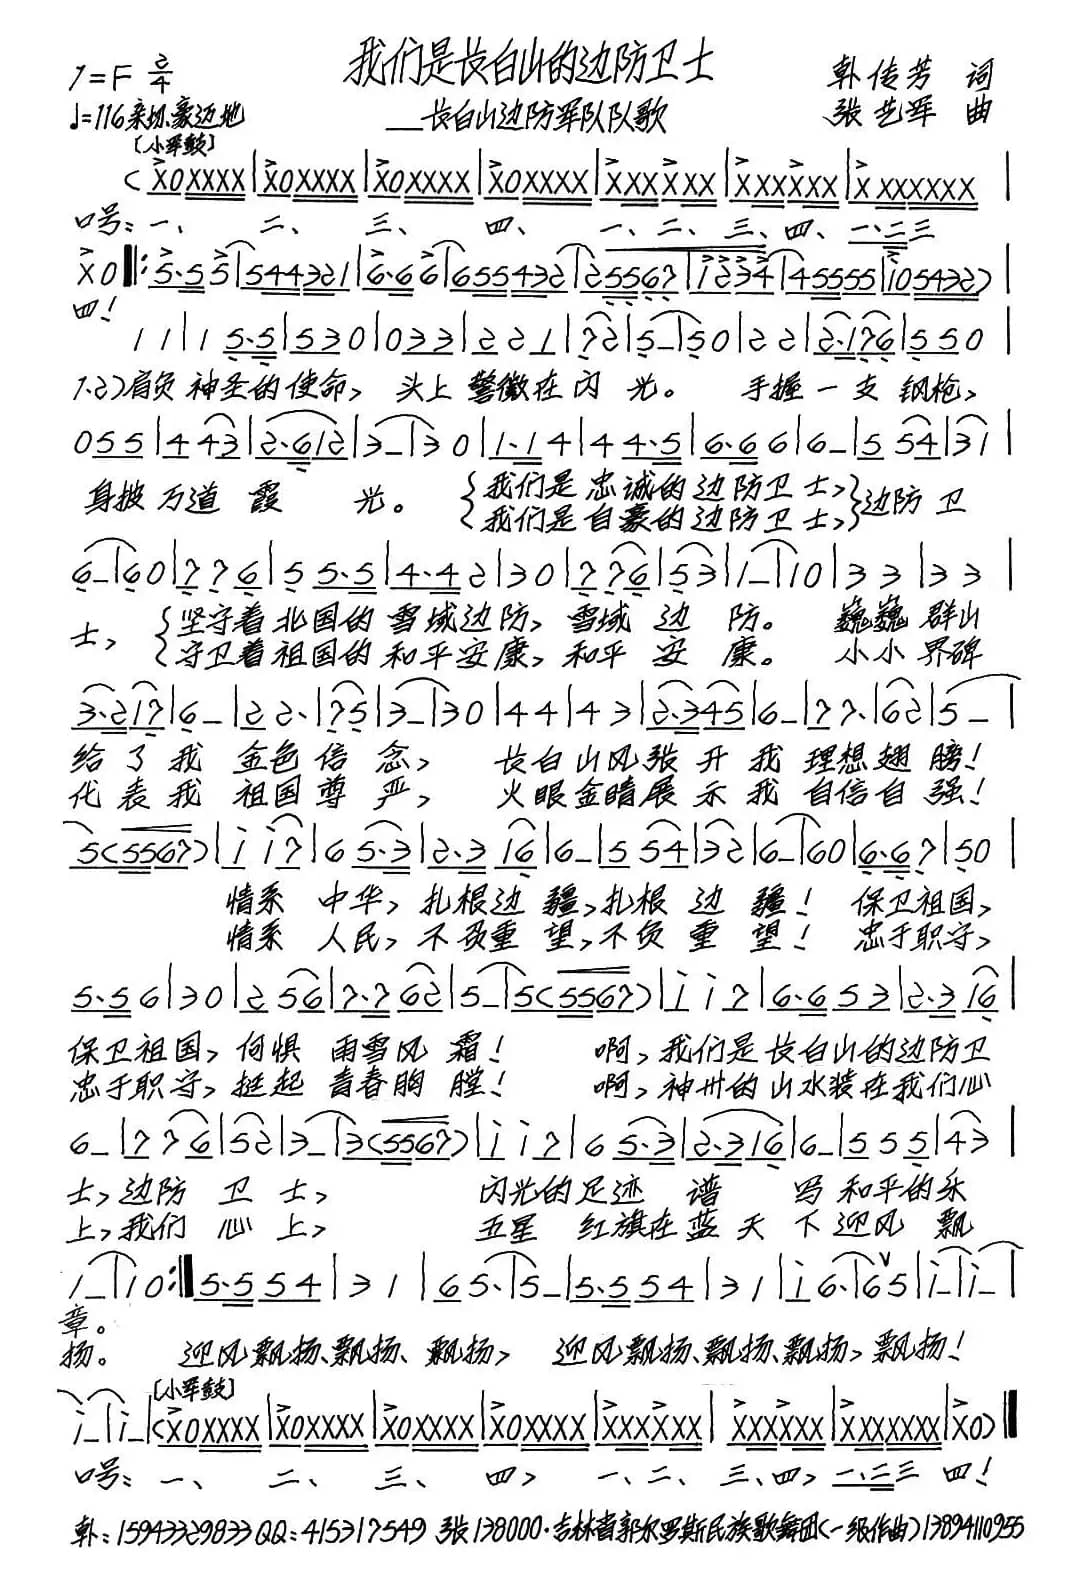 我们是长白山的边防卫士
1=F 2/4
韩传芳 词
♩=116 亲切、豪迈地
——长白山边防军队队歌
张艺军 曲
[小军鼓]
(X0XXXX|X0XXXX|X0XXXX|X0XXXX|XXXXXX|XXXXXX|XXXXXXX|
口号:一、 二、 三、 四、 一、二、三、四、一、二三
X0‖:5·55|544321|6·66|655432|25567|1234|45555|105432)
四!
11|15·5|530|033|221|72|5_|50|22|2·176|550|
1.2)肩负神圣的使命, 头上警徽在闪光。 手握一支钢枪,
055|443|2·612|3_|30|1·14|444·5|6·666|6_|554|31|
身披万道霞 光。 {我们是忠诚的边防卫士,}边防卫
{我们是自豪的边防卫士,}
6_|60|776|555·5|4·42|30|776|53|1_|10|33|33|
士, {坚守着北国的雪域边防, 雪域边防。 巍巍群山
{守卫着祖国的和平安康, 和平安康。 小小界碑
3·217|6_|22·|75|3_|30|44|43|2·345|6_|77·|62|5_|
给了我 金色信念, 长白山风张开我理想翅膀!
代表我 祖国尊严, 火眼金睛展示我自信自强!
5(5567)|1 17|65·3|2·316|6_|554|32|6_|60|6·67|50|
情系中华, 扎根边疆, 扎根边疆! 保卫祖国,
情系人民, 不负重望, 不负重望! 忠于职守,
5·56|30|256|7·762|5_|5(5567)|117|6·653|2·316|
保卫祖国, 何惧雨雪风霜! 啊, 我们是长白山的边防卫
忠于职守, 挺起青春胸膛! 啊, 神州的山水装在我们心
6_|776|52|3_|3(5567)|117|65·3|2·316|6_|555|43|
士, 边防卫士, 闪光的足迹谱写和平的乐
上, 我们心上, 五星红旗在蓝天下迎风飘
1_|10:‖5·554|31|65·|5_|5·554|31|16·|65|1_|1_|
章。
扬。 迎风飘扬、飘扬、飘扬, 迎风飘扬、飘扬、飘扬, 飘扬!
[小军鼓]
1_|1_|(X0XXXX|X0XXXX|X0XXXX|X0XXXX|XXXXXX|XXXXXX|XXXXXXX|X0)‖
口号:一、 二、 三、 四, 一、二、三、四, 一、二三四!
韩:15943329833 QQ:415317549 张138000·吉林省郭尔罗斯民族歌舞团(一级作曲)13894110955